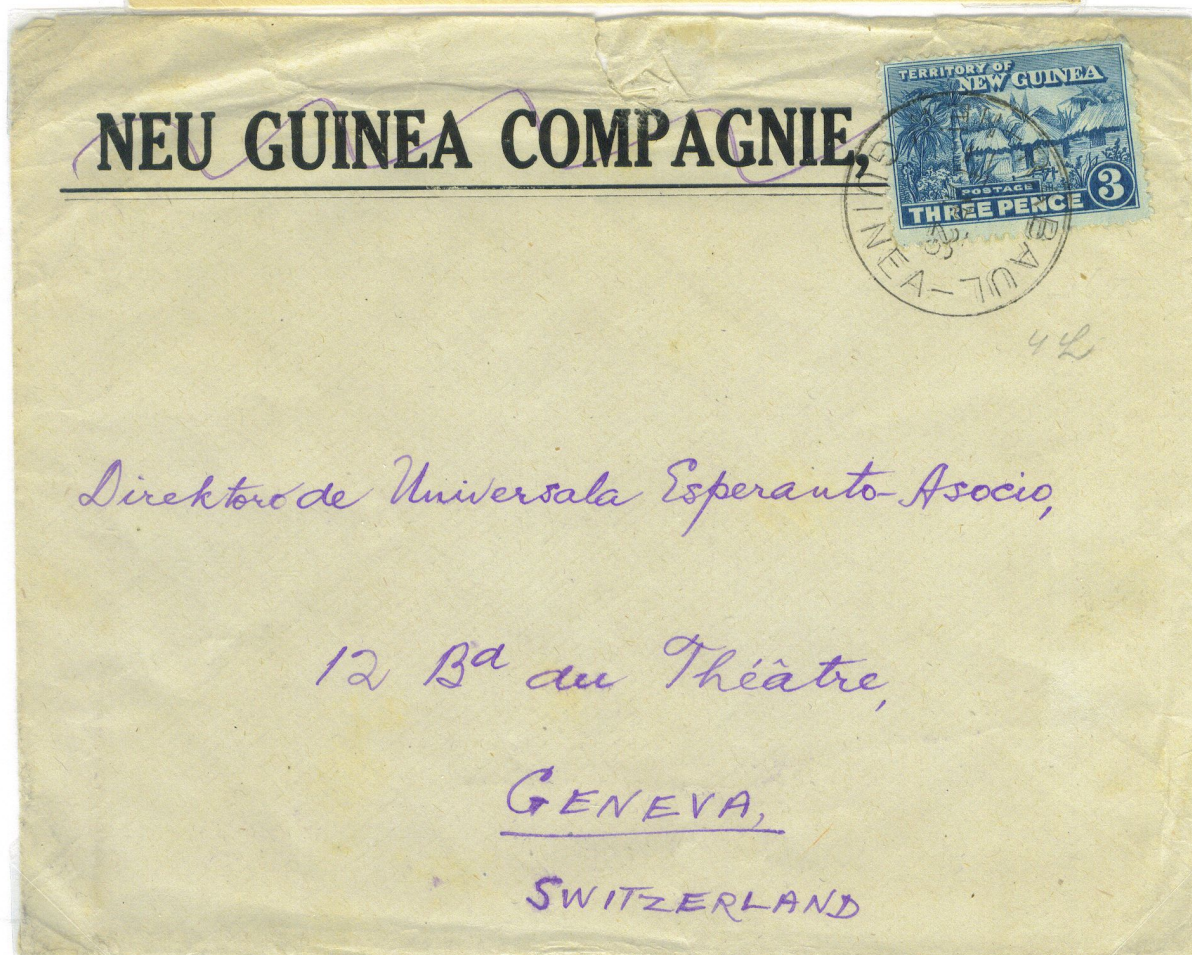 NEU GUINEA COMPAGNIE,
TERRITORY OF
NEW GUINEA
POSTAGE
THREE PENCE 3
Direktoro de Universala Esperanto-Asocio,
12 Bd du Théâtre,
GENEVA,
SWITZERLAND